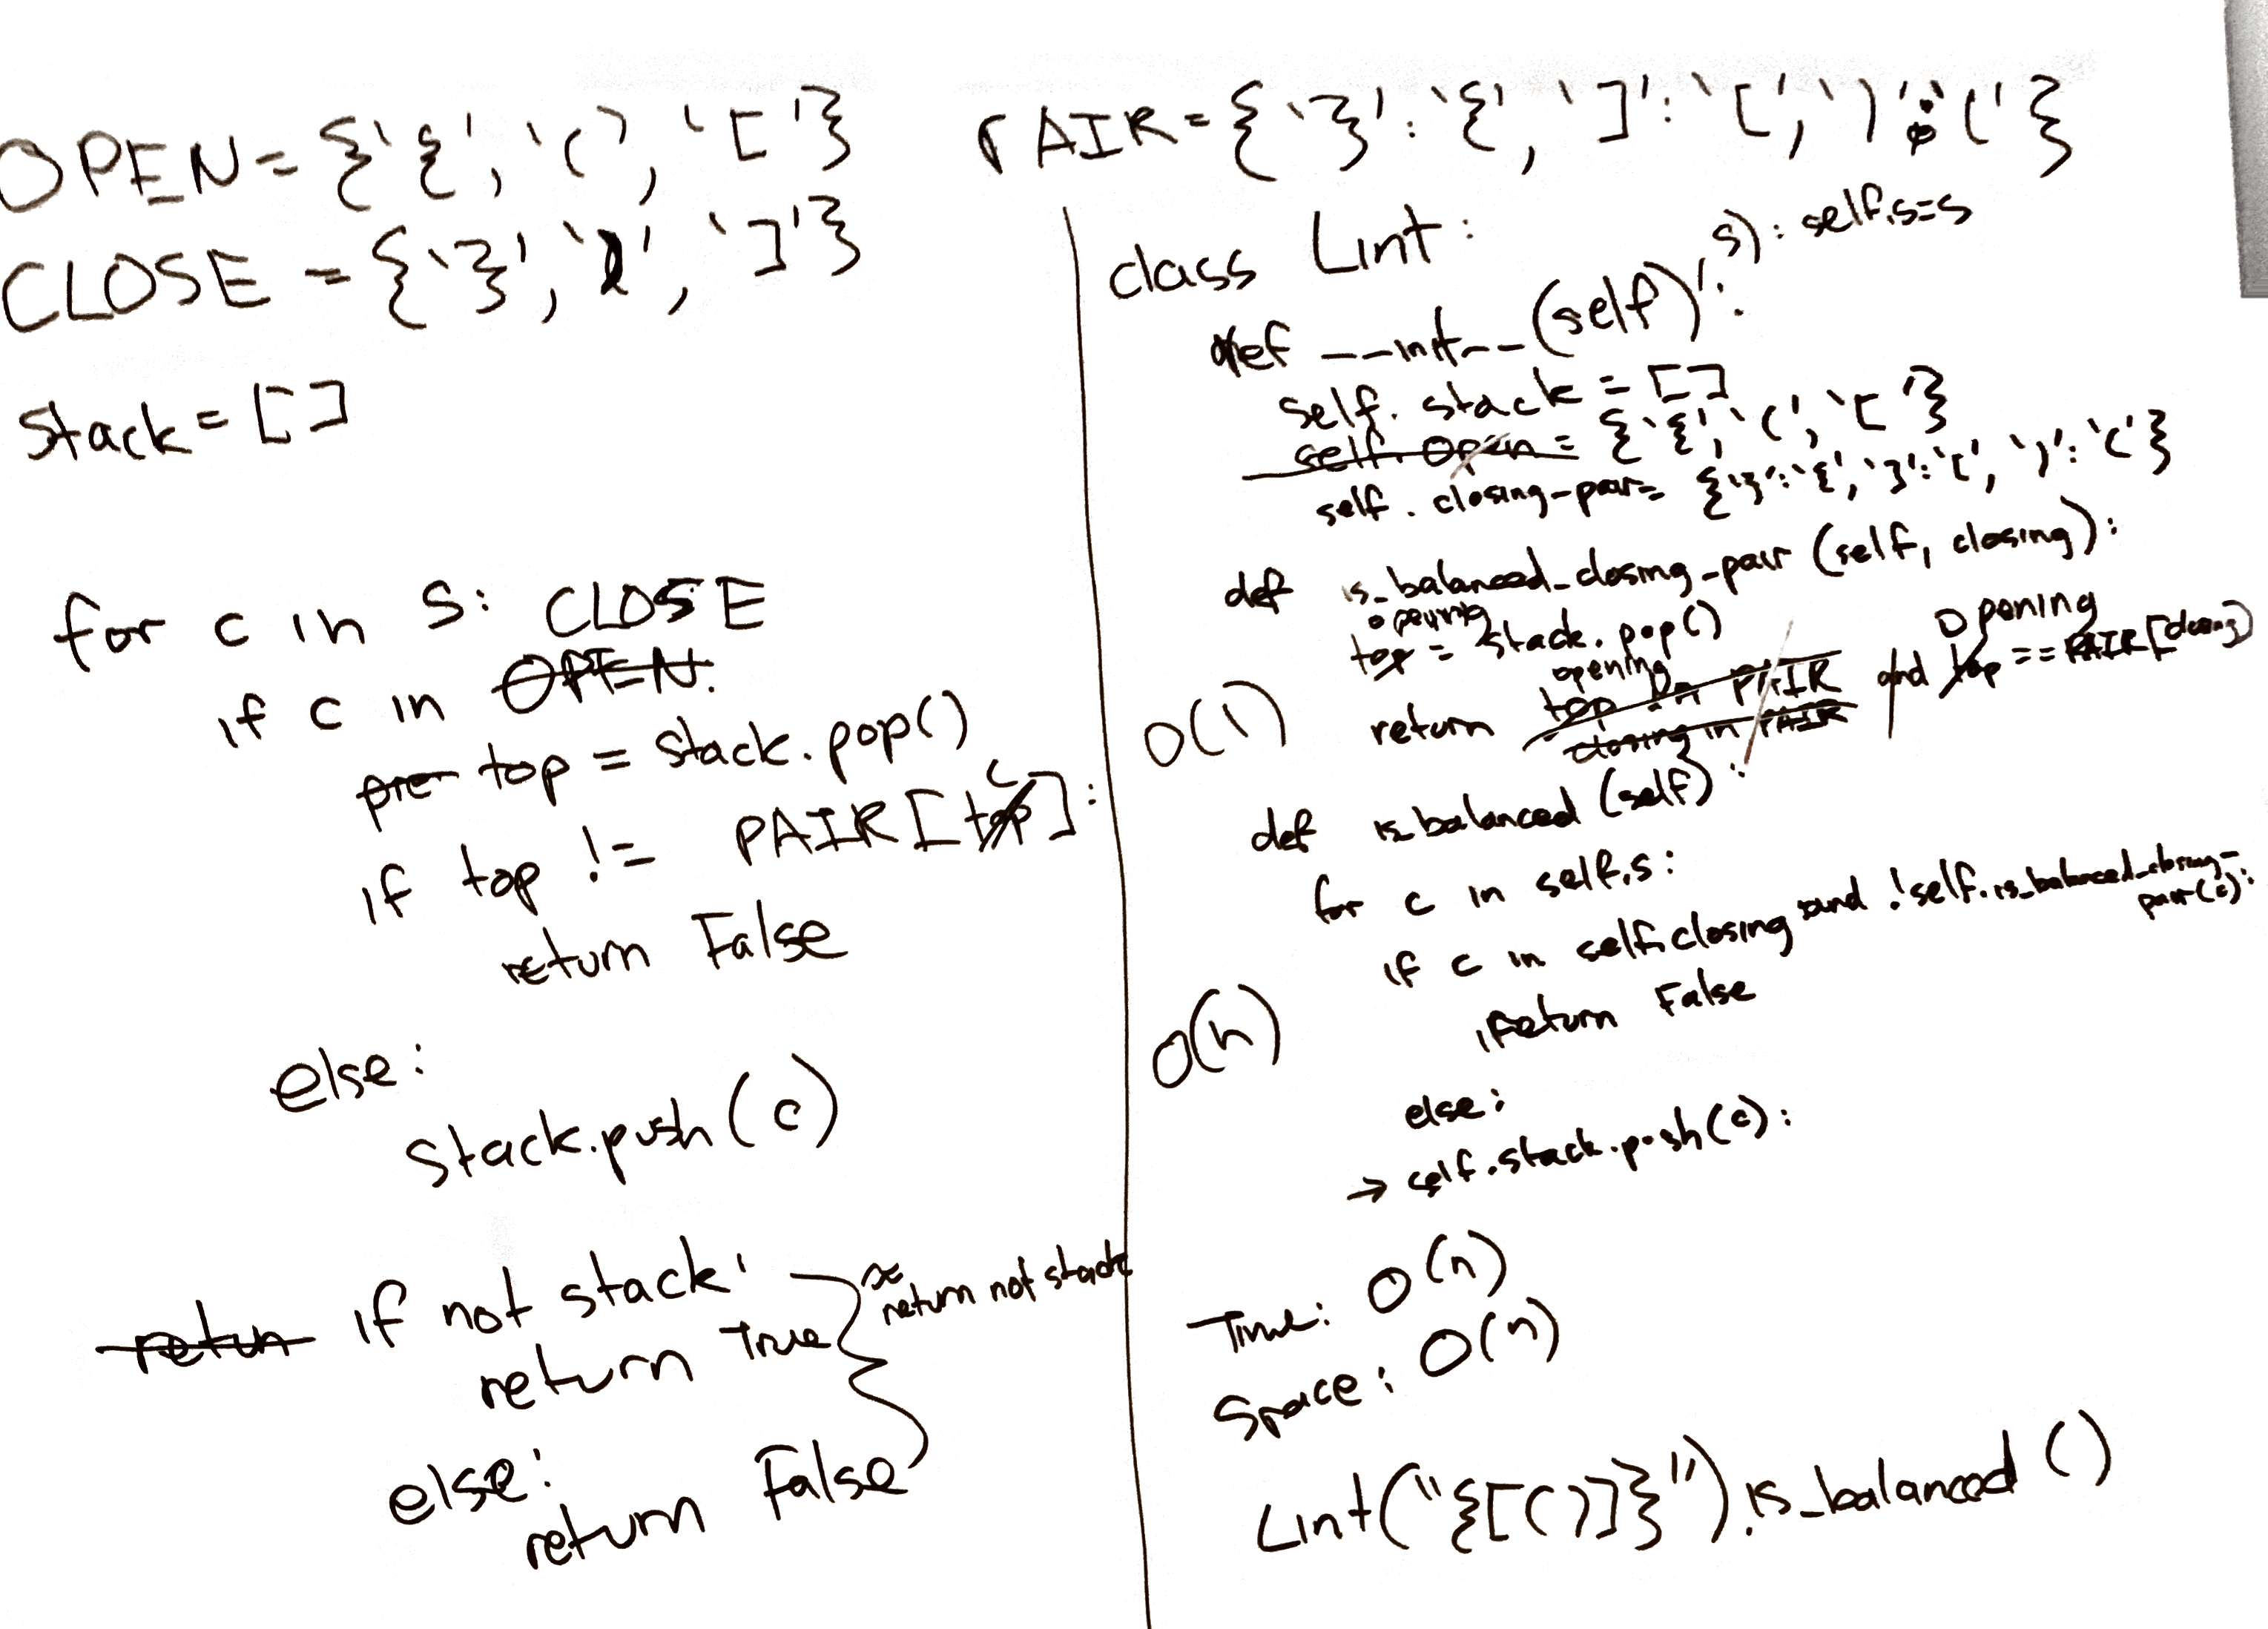 OPEN={'{', '(', '['}
CLOSE = {'}', ')', ']'}
stack=[]
for c in s:
CLOSE
if c in OPEN:
pre top = stack.pop()
c
if top != PAIR[top]:
return False
else:
stack.push(c)
return if not stack:
return True
else:
return False
return not stack
PAIR={'}':'{', ']':'[', ')':'('}
class Lint:
, s): self.s=s
def __init__(self):
self.stack = []
self.open = {'{', '(', '['}
self.closing_pair= {'}':'{', ']':'[', ')':'('}
def is_balanced_closing_pair (self, closing):
opening
top = stack.pop()
opening
opening
O(1)
return top in PAIR and top == PAIR[closing]
closing in PAIR
def is_balanced (self):
for c in self.s:
if c in self.closing and !self.is_balanced_closing_
pair(c):
return False
O(n)
else:
→ self.stack.push(c):
Time: O(n)
Space: O(n)
Lint("{[()]}").is_balanced()